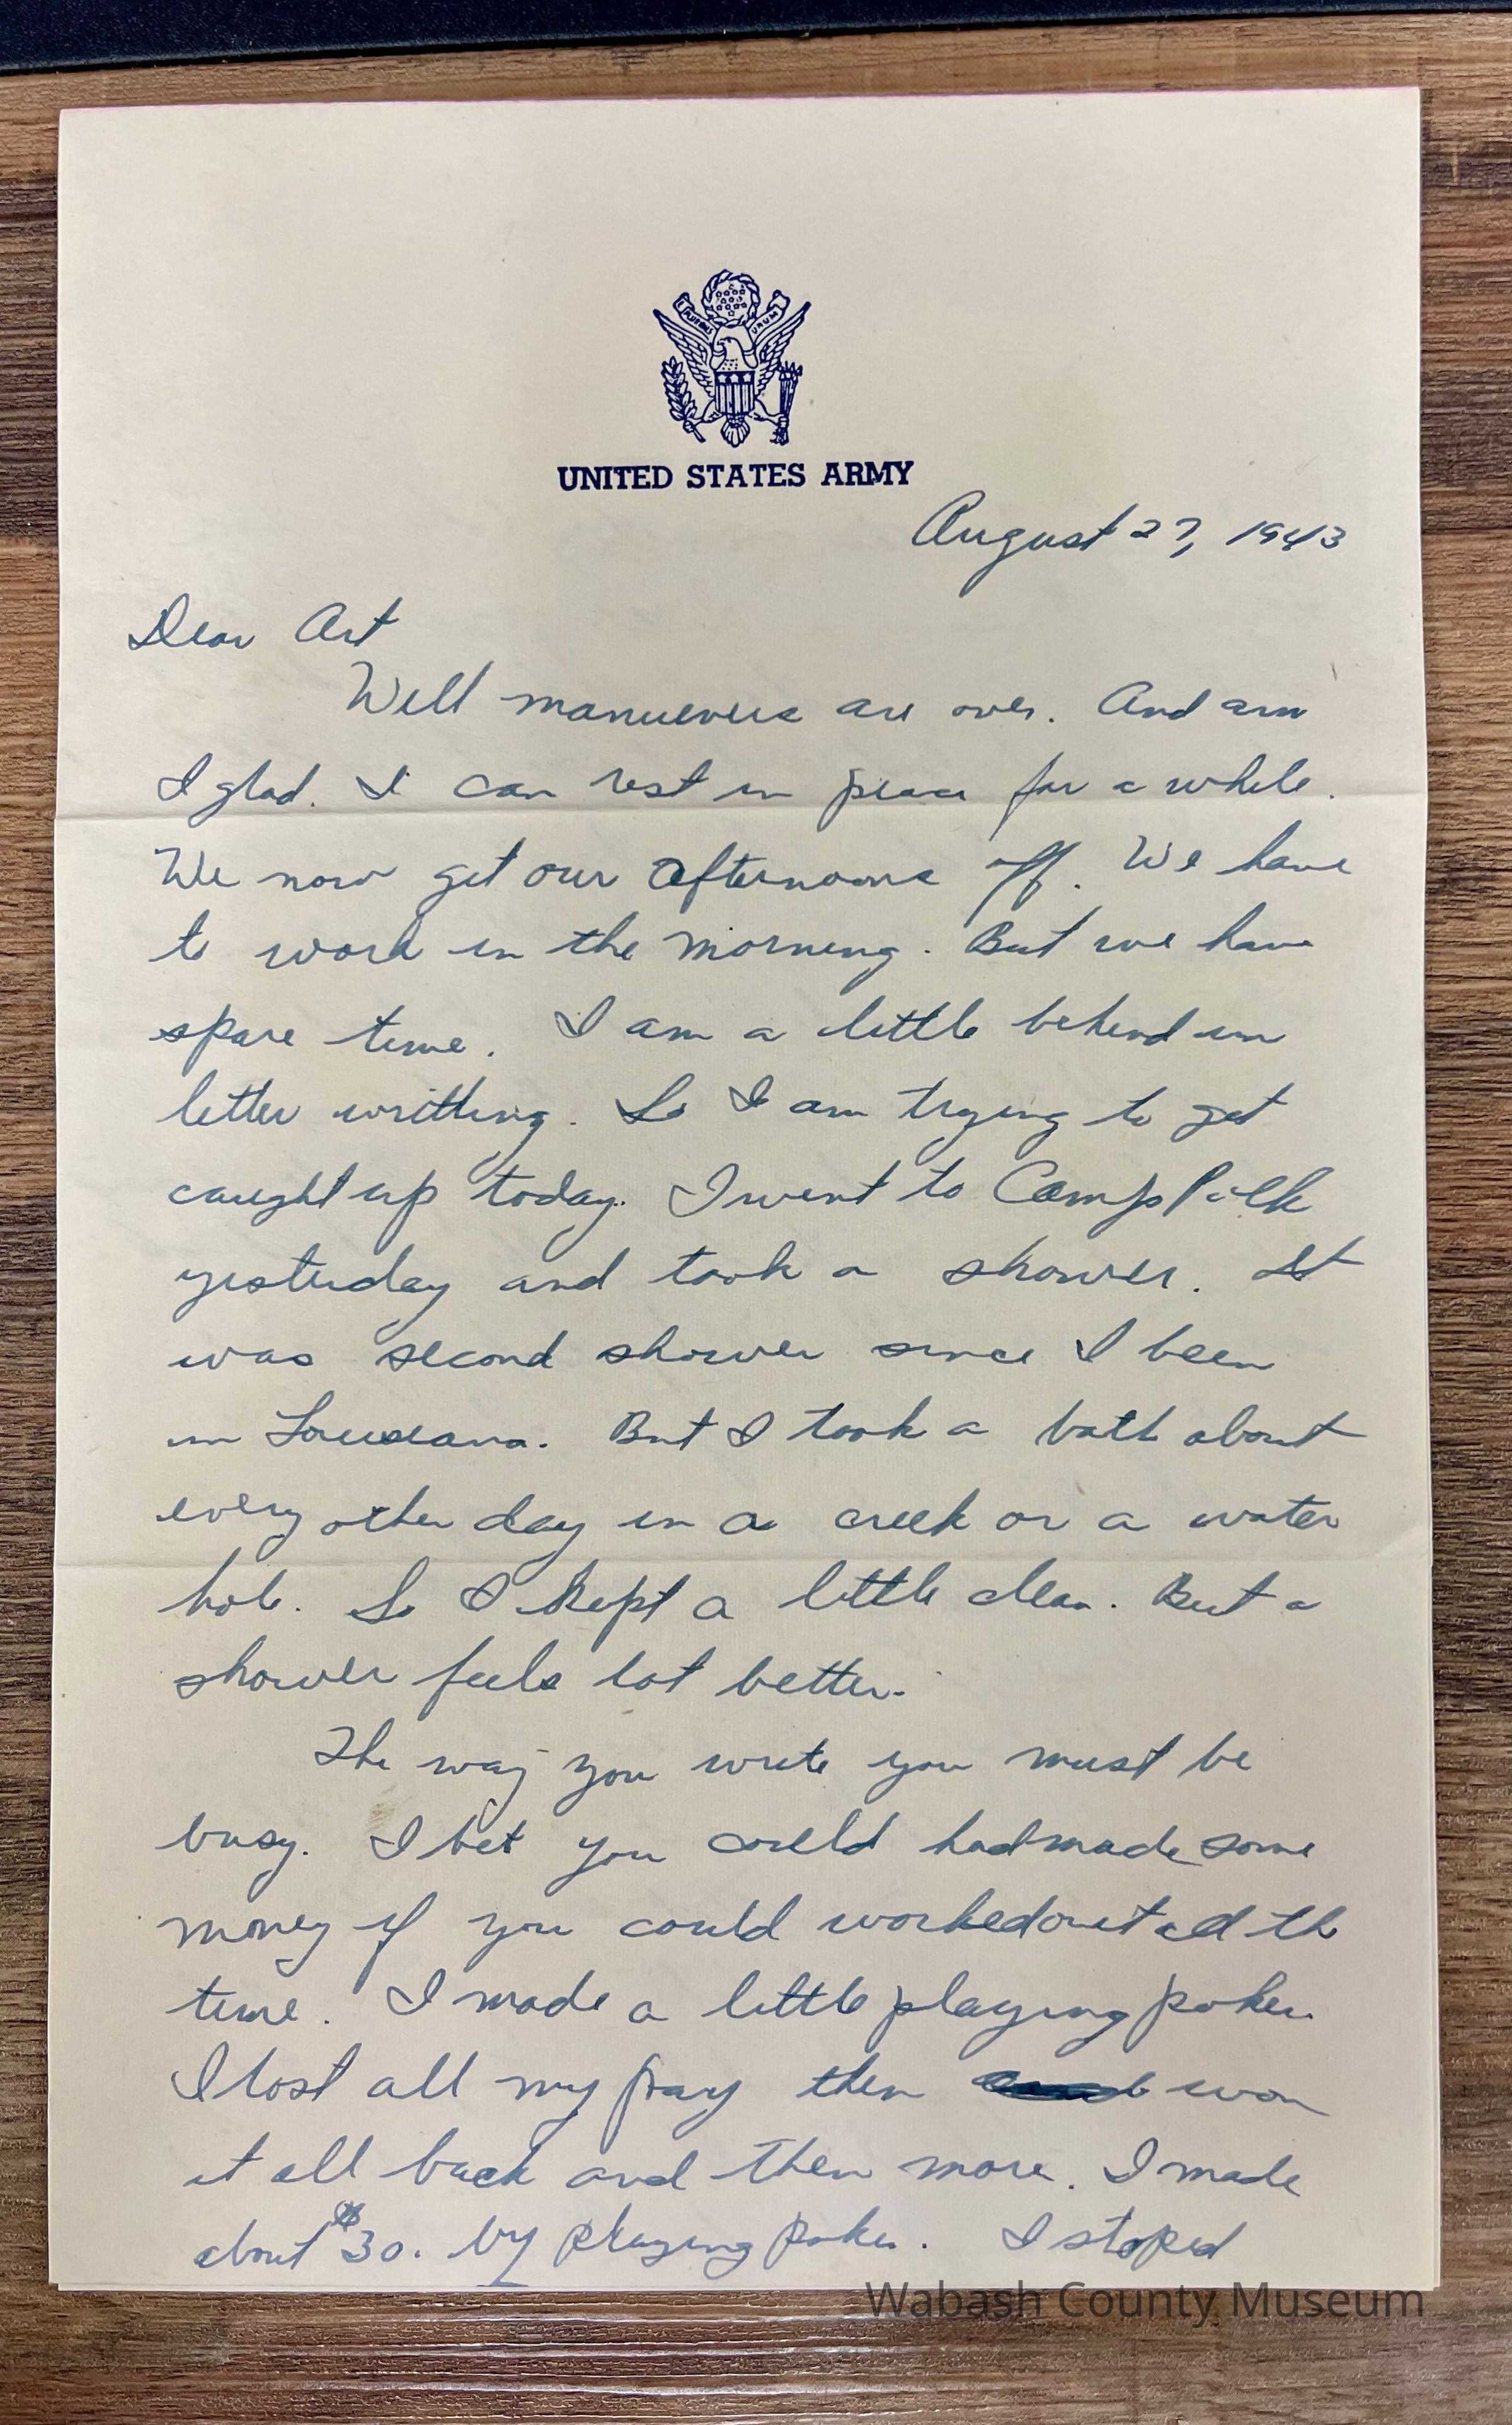 E PLURIBUS UNUM
UNITED STATES ARMY
August 27, 1943
Dear Art
Well manuevers are over. And am
I glad. I can rest in peace for a while.
We now get our afternoons off. We have
to work in the morning. But we have
spare time. I am a little behind in
letter writting. So I am trying to get
caught up today. I went to Camp Polk
yesterday and took a shower. It
was second shower since I been
in Louisiana. But I took a bath about
every other day in a creek or a water
hole. So I kept a little clean. But a
shower feels lot better.
The way you write you must be
busy. I bet you could had made some
money if you could worked out all the
time. I made a little playing poker.
I lost all my pay then won
it all back and then more. I made
about $30. by playing poker. I stoped
Wabash County Museum